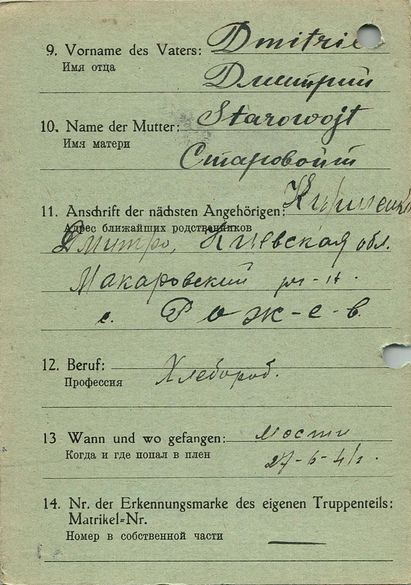 9. Vorname des Vaters: Dmitri
Имя отца Дмитрий
10. Name der Mutter: Starowojt
Имя матери Старовойт
11. Anschrift der nächsten Angehörigen:
Адрес ближайших родственников
Дмитро, Киевская обл.
Макаровский р-н
с. Рожев
12. Beruf:
Профессия Хлебороб.
13 Wann und wo gefangen: Мости
Когда и где попал в плен 27-6-41г.
14. Nr. der Erkennungsmarke des eigenen Truppenteils:
Matrikel=Nr.
Номер в собственной части —